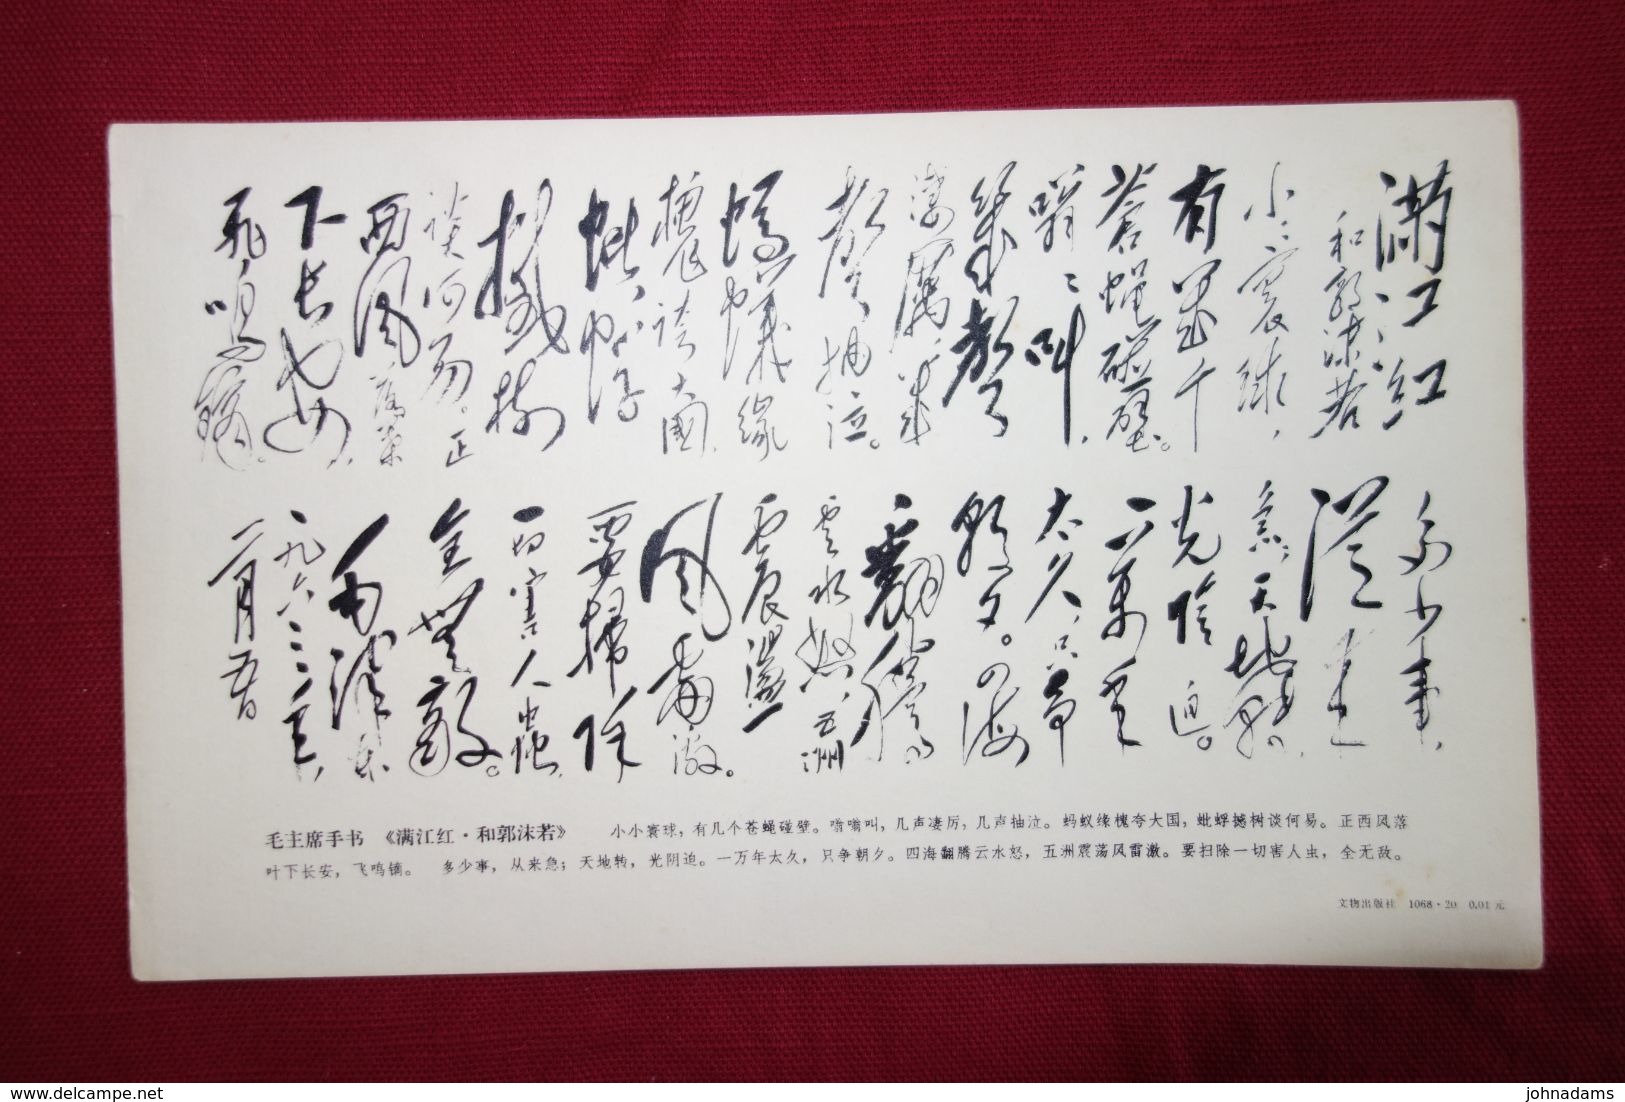 满江红
和郭沫若
小小寰球，
有几个
苍蝇碰壁。
嗡嗡叫，
几声
凄厉，几
声抽泣。
蚂蚁缘
槐夸大国，
蚍蜉
撼树
谈何易。正
西风落叶
下长安，
飞鸣镝。
多少事，
从来
急；天地转，
光阴迫。
一万年
太久，只争
朝夕。四海
翻腾
云水怒，五洲
震荡
风雷激。
要扫除
一切害人虫，
全无敌。
毛泽东
一九六三年
二月五日
毛主席手书 《满江红·和郭沫若》 小小寰球，有几个苍蝇碰壁。嗡嗡叫，几声凄厉，几声抽泣。蚂蚁缘槐夸大国，蚍蜉撼树谈何易。正西风落
叶下长安，飞鸣镝。 多少事，从来急；天地转，光阴迫。一万年太久，只争朝夕。四海翻腾云水怒，五洲震荡风雷激。要扫除一切害人虫，全无敌。
文物出版社 1068·20 0.01元
delcampe.net
johnadams